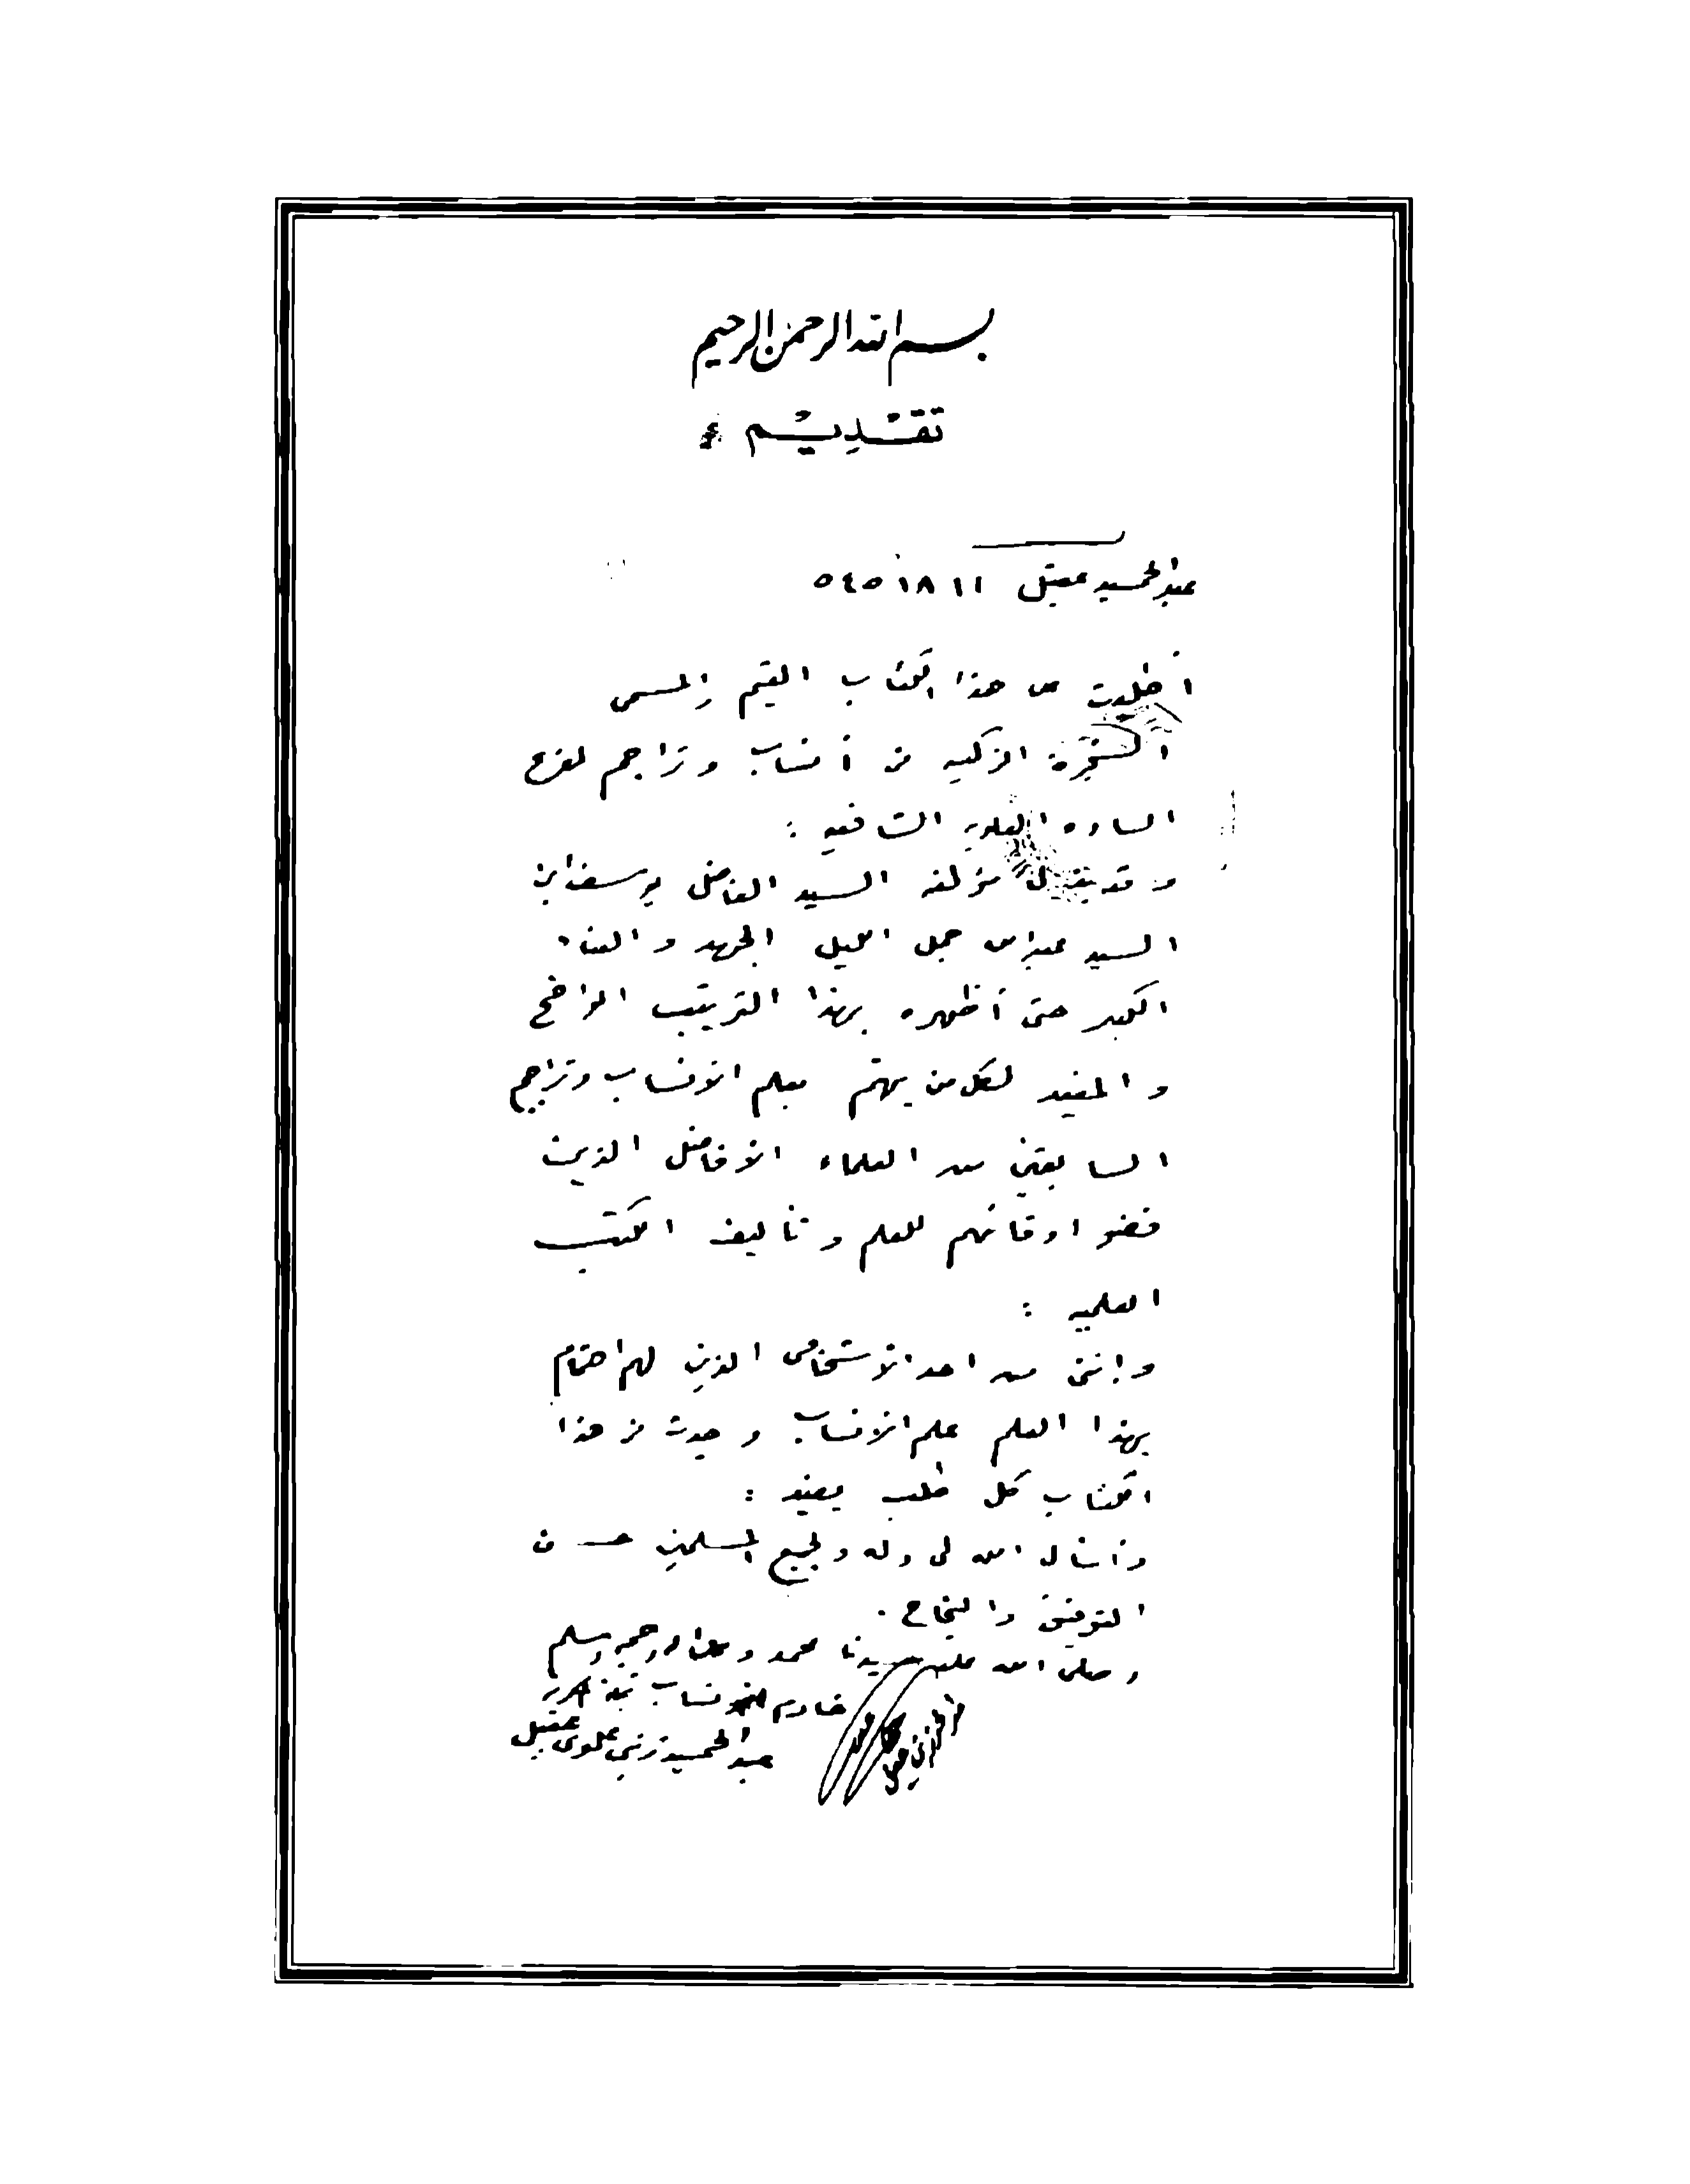 بسم الله الرحمن الرحيم
تقديم
عبد الحميد عقيل ٥٤٥١٨١١
أطلعت على هذا الكتاب القيم والمسمى
الشجرة الزكيه في أنساب وتراجم
الساده العلويه الشافعيه :
وقد مؤلفه السيد الفاضل يوسف ابن
السيد عبدالله جمل الليل الجهد والعناء
الكبير حتى أظهره بهذا الترتيب الواضح
والمفيد لكل من يهتم بعلم الأنساب وتراجم
السابقين من العلماء الأفاضل الذين
قضو اوقاتهم للعلم وتأليف الكتب
العلميه :
وإنني من احد الأشخاص الذين لهم اهتمام
بهذا العلم علم الأنساب وجدت في هذا
الكتاب كل طلب يفيد :
وأسأل الله لي وله ولجميع المسلمين حسن
التوفيق والنجاح .
وصلى الله على سيدنا محمد وعلى اله وصحبه وسلم
خادم الأنساب
عبد الحميد زيني علوي عقيل